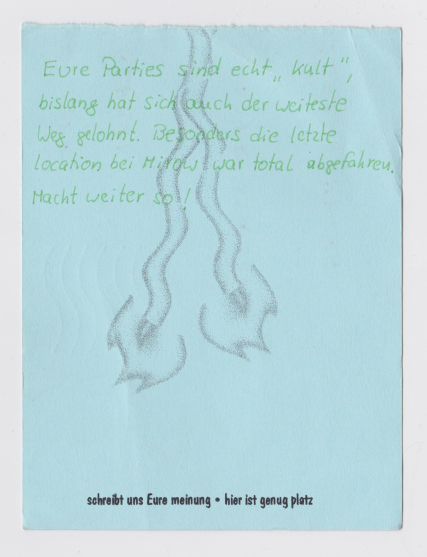 Eure Parties sind echt „Kult",
bislang hat sich auch der weiteste
Weg gelohnt. Besonders die letzte
location bei Mirow war total abgefahren.
Macht weiter so!
schreibt uns Eure meinung • hier ist genug platz